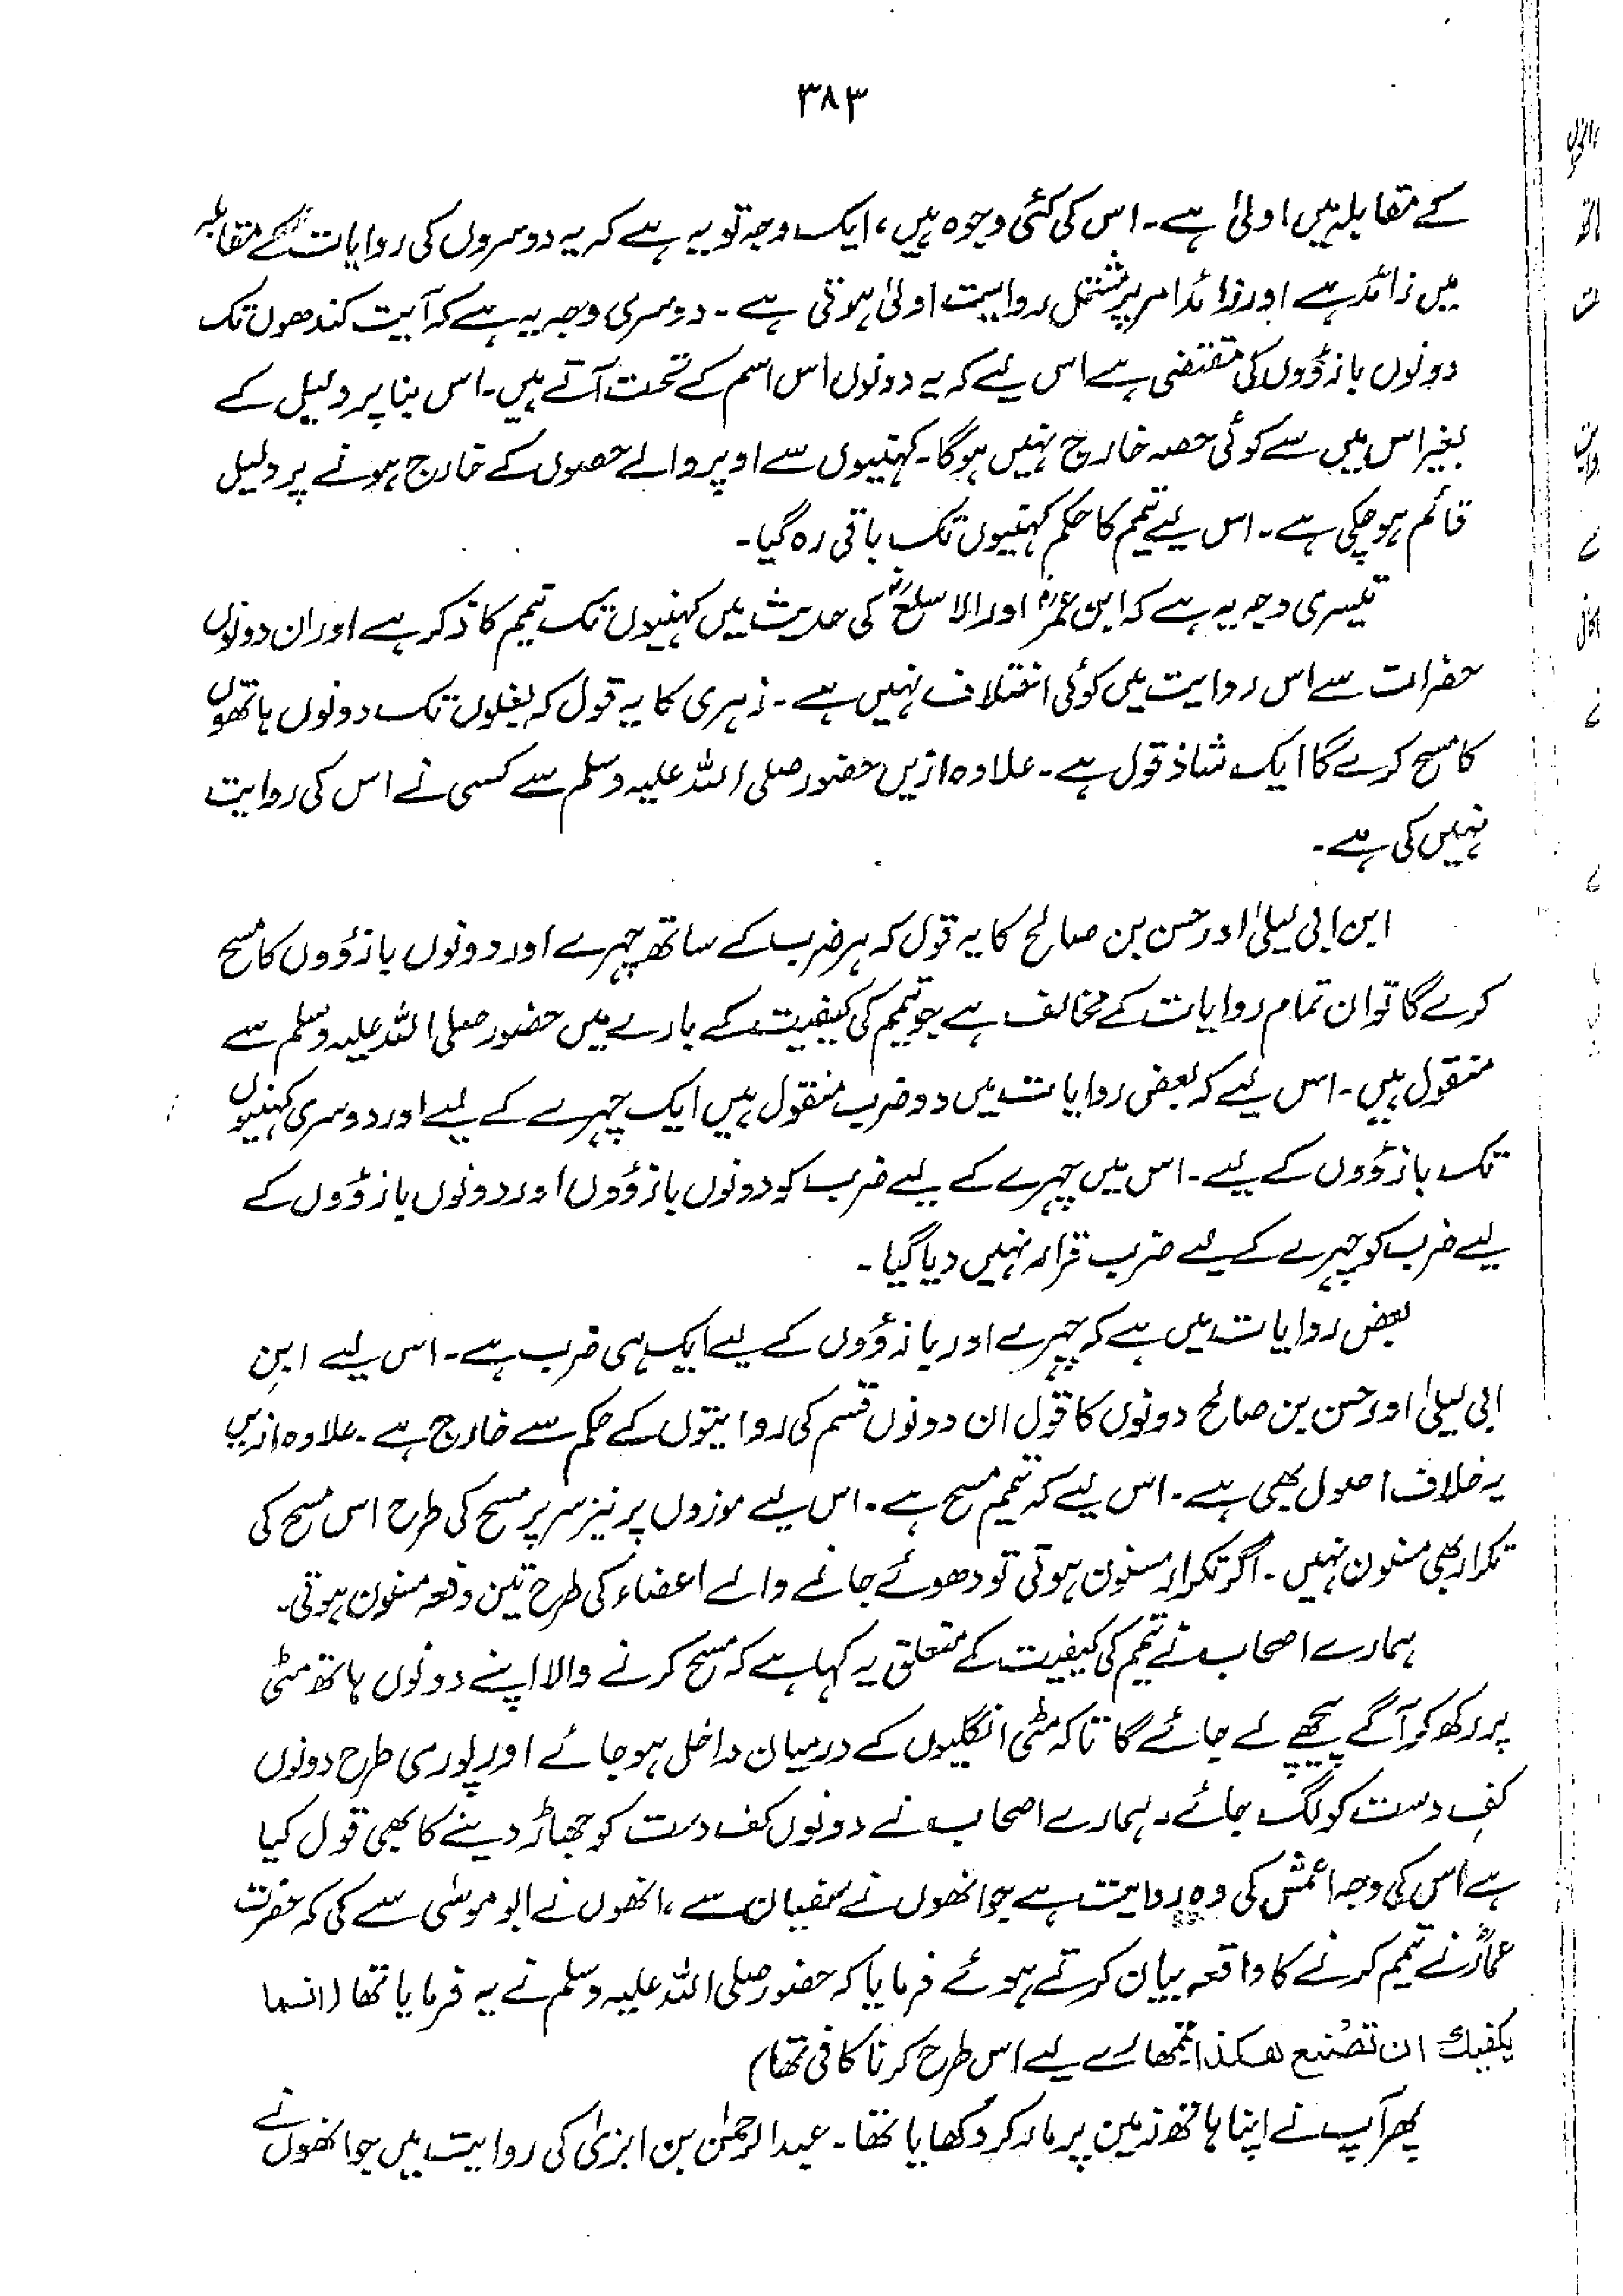 ۳۸۳
کے مقابلہ میں اولیٰ ہے۔ اس کی کئی وجوہ ہیں، ایک وجہ تو یہ ہے کہ یہ دوسروں کی روایات کے مقابلہ
میں زائد ہے اور زائد امر پر مشتمل روایت اولیٰ ہوتی ہے۔ دوسری وجہ یہ ہے کہ آیت کندھوں تک
دونوں بازوؤں کی مقتضی ہے اس لیے کہ یہ دونوں اس اسم کے تحت آتے ہیں۔ اس بنا پر دلیل کے
بغیر اس میں سے کوئی حصہ خارج نہیں ہوگا۔ کہنیوں سے اوپر والے حصوں کے خارج ہونے پر دلیل
قائم ہو چکی ہے۔ اس لیے تیمم کا حکم کہنیوں تک باقی رہ گیا۔
تیسری وجہ یہ ہے کہ ابن عمرؓ اور الاسلعؓ کی حدیث میں کہنیوں تک تیمم کا ذکر ہے اور ان دونوں
حضرات سے اس روایت میں کوئی اختلاف نہیں ہے۔ زہری کا یہ قول کہ بغلوں تک دونوں ہاتھوں
کا مسح کرے گا ایک شاذ قول ہے۔ علاوہ ازیں حضور صلی اللہ علیہ وسلم سے کسی نے اس کی روایت
نہیں کی ہے۔
ابن ابی لیلیٰ اور حسن بن صالح کا یہ قول کہ ہر ضرب کے ساتھ چہرے اور دونوں بازوؤں کا مسح
کرے گا تو ان تمام روایات کے مخالف ہے جو تیمم کی کیفیت کے بارے میں حضور صلی اللہ علیہ وسلم سے
منقول ہیں۔ اس لیے کہ بعض روایات میں دو ضرب منقول ہیں ایک چہرے کے لیے اور دوسری کہنیوں
تک بازوؤں کے لیے۔ اس میں چہرے کے لیے ضرب کو دونوں بازوؤں اور دونوں بازوؤں کے
لیے ضرب کو چہرے کے لیے ضرب قرار نہیں دیا گیا۔
بعض روایات میں ہے کہ چہرے اور بازوؤں کے لیے ایک ہی ضرب ہے۔ اس لیے ابن
ابی لیلیٰ اور حسن بن صالح دونوں کا قول ان دونوں قسم کی روایتوں کے حکم سے خارج ہے۔ علاوہ ازیں
یہ خلاف اصول بھی ہے۔ اس لیے کہ تیمم مسح ہے۔ اس لیے موزوں پر نیز سر پر مسح کی طرح اس مسح کی
تکرار بھی مسنون نہیں۔ اگر تکرار مسنون ہوتی تو دھوئے جانے والے اعضاء کی طرح تین دفعہ مسنون ہوتی۔
ہمارے اصحاب نے تیمم کی کیفیت کے متعلق یہ کہا ہے کہ مسح کرنے والا اپنے دونوں ہاتھ مٹی
پر رکھ کر آگے پیچھے لے جائے گا تاکہ مٹی انگلیوں کے درمیان داخل ہو جائے اور پوری طرح دونوں
کفِ دست کو لگ جائے۔ ہمارے اصحاب نے دونوں کف دست کو جھاڑ دینے کا بھی قول کیا
ہے اس کی وجہ اعمش کی وہ روایت ہے جو انھوں نے سفیان سے، انھوں نے ابو موسیٰ سے کی کہ حضرت
عمارؓ نے تیمم کرنے کا واقعہ بیان کرتے ہوئے فرمایا کہ حضور صلی اللہ علیہ وسلم نے یہ فرمایا تھا (انما
یکفیك ان تصنع هكذا تمھارے لیے اس طرح کرنا کافی تھا)
پھر آپ نے اپنا ہاتھ زمین پر مار کر دکھایا تھا۔ عبدالرحمٰن بن ابزیٰ کی روایت میں جو انھوں نے